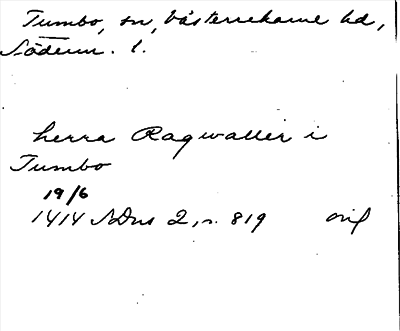 Tumbo, sn, Västerrekarne hd,
Söderm. l.
herra Ragwaller i
Tumbo
19/6
1414 SDns 2, s. 819 orig